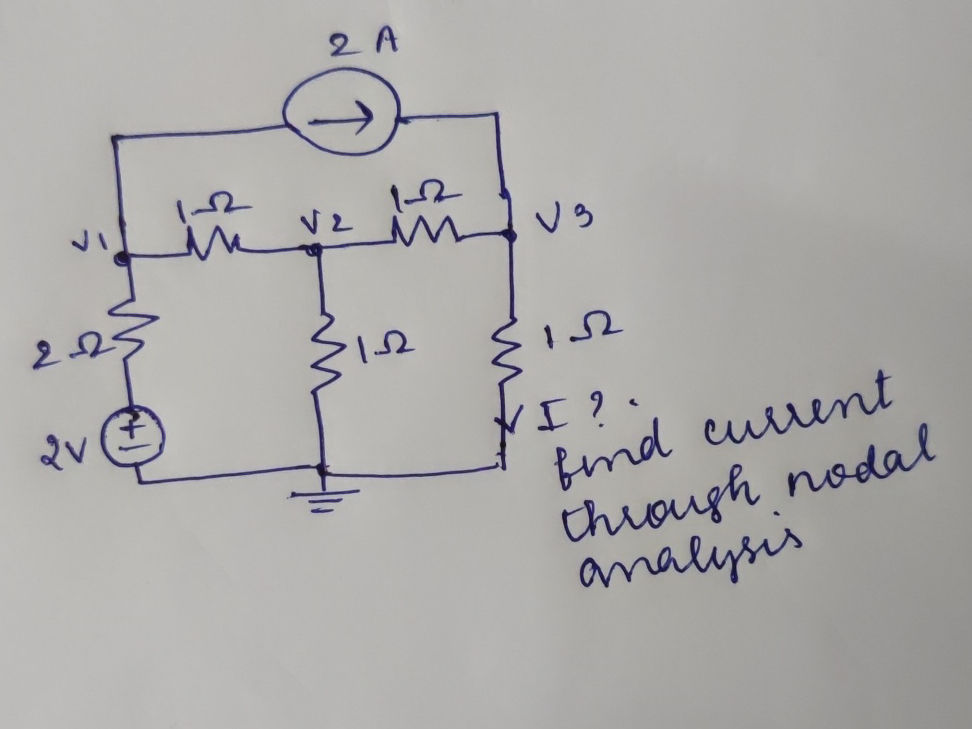 2 A
1Ω
1Ω
V1
V2
V3
2Ω
1Ω
1Ω
2V
+
−
I?.
find current
through nodal
analysis